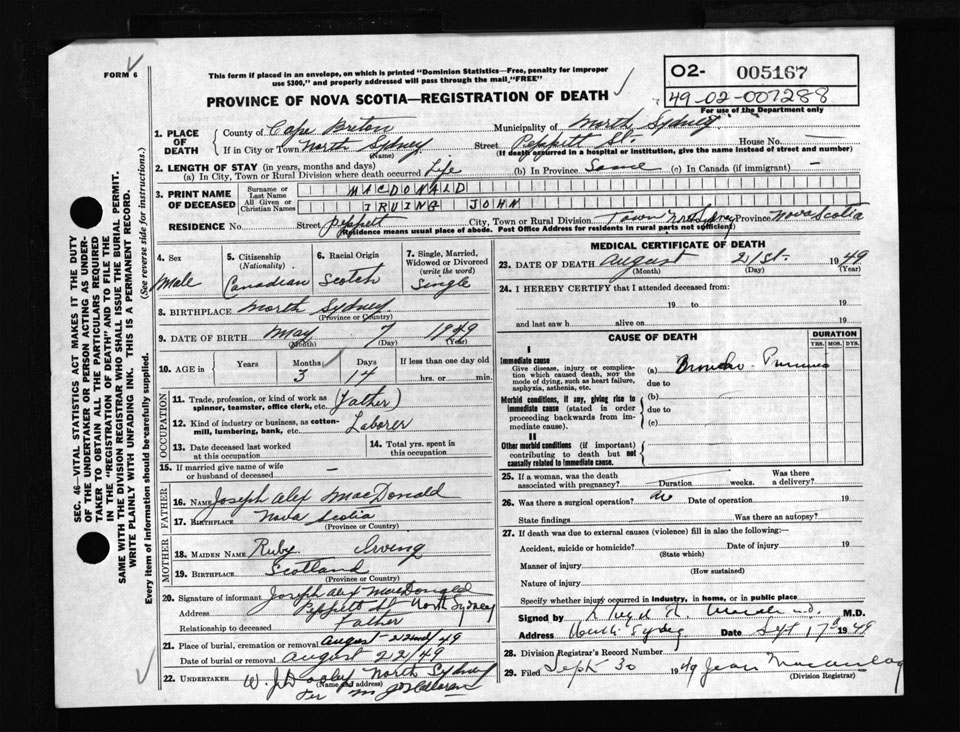 FORM 6
This form if placed in an envelope, on which is printed "Dominion Statistics—Free, penalty for improper
use $300," and properly addressed will pass through the mail, "FREE"
PROVINCE OF NOVA SCOTIA—REGISTRATION OF DEATH
02- 005167
49-02-007288
For use of the Department only
1. PLACE OF DEATH County of Cape Breton Municipality of North Sydney
If in City or Town North Sydney (Name) Street Peppett St. House No.
(If death occurred in a hospital or institution, give the name instead of street and number)
2. LENGTH OF STAY (in years, months and days)
(a) In City, Town or Rural Division where death occurred Life (b) In Province Same (c) In Canada (if immigrant) —
3. PRINT NAME OF DECEASED Surname or Last Name MACDONALD
All Given or Christian Names IRVING JOHN
RESIDENCE No. Street Peppett City, Town or Rural Division Town North Sydney Province Nova Scotia
(Residence means usual place of abode. Post Office Address for residents in rural parts not sufficient)
4. Sex Male
5. Citizenship (Nationality) Canadian
6. Racial Origin Scotch
7. Single, Married, Widowed or Divorced (write the word) Single
8. BIRTHPLACE North Sydney
(Province or Country)
9. DATE OF BIRTH May 7 1949
(Month) (Day) (Year)
10. AGE in Years Months 3 Days 14 If less than one day old hrs. or min.
OCCUPATION
11. Trade, profession, or kind of work as spinner, teamster, office clerk, etc. (Father)
12. Kind of industry or business, as cotton-mill, lumbering, bank, etc. Laborer
13. Date deceased last worked at this occupation
14. Total yrs. spent in this occupation
15. If married give name of wife or husband of deceased —
FATHER
16. Name Joseph Alex MacDonald
17. Birthplace Nova Scotia
(Province or Country)
MOTHER
18. Maiden Name Ruby Irving
19. Birthplace Scotland
(Province or Country)
20. Signature of informant Joseph Alex MacDonald
Address Peppett St North Sydney
Relationship to deceased Father
21. Place of burial, cremation or removal August 22nd/49
Date of burial or removal August 22/49
22. UNDERTAKER W. J. Dooley North Sydney
(Name and Address)
Per
MEDICAL CERTIFICATE OF DEATH
23. DATE OF DEATH August 21st. 1949
(Month) (Day) (Year)
24. I HEREBY CERTIFY that I attended deceased from:
19 to 19
and last saw h alive on 19
CAUSE OF DEATH
DURATION
YRS. MOS. DYS.
I
Immediate cause
Give disease, injury or complication which caused death, not the mode of dying, such as heart failure, asphyxia, asthenia, etc.
(a) Broncho
due to
Morbid conditions, if any, giving rise to immediate cause (stated in order proceeding backwards from immediate cause).
(b)
due to
(c)
II
Other morbid conditions (if important) contributing to death but not causally related to immediate cause.
25. If a woman, was the death associated with pregnancy? Duration weeks. Was there a delivery?
26. Was there a surgical operation? No Date of operation 19
State findings Was there an autopsy?
27. If death was due to external causes (violence) fill in also the following:—
Accident, suicide or homicide? Date of injury 19
(State which)
Manner of injury
(How sustained)
Nature of injury
Specify whether injury occurred in industry, in home, or in public place
Signed by M.D.
Address North Sydney Date Sept 17 1949
28. Division Registrar's Record Number
29. Filed Sept 30 1949 Jean Macaulay
(Division Registrar)
SEC. 46—VITAL STATISTICS ACT MAKES IT THE DUTY
OF THE UNDERTAKER OR PERSON ACTING AS UNDER-
TAKER TO OBTAIN ALL THE PARTICULARS REQUIRED
IN THE "REGISTRATION OF DEATH" AND TO FILE THE
SAME WITH THE DIVISION REGISTRAR WHO SHALL ISSUE THE BURIAL PERMIT.
WRITE PLAINLY WITH UNFADING INK. THIS IS A PERMANENT RECORD.
Every item of information should be carefully supplied. (See reverse side for instructions.)